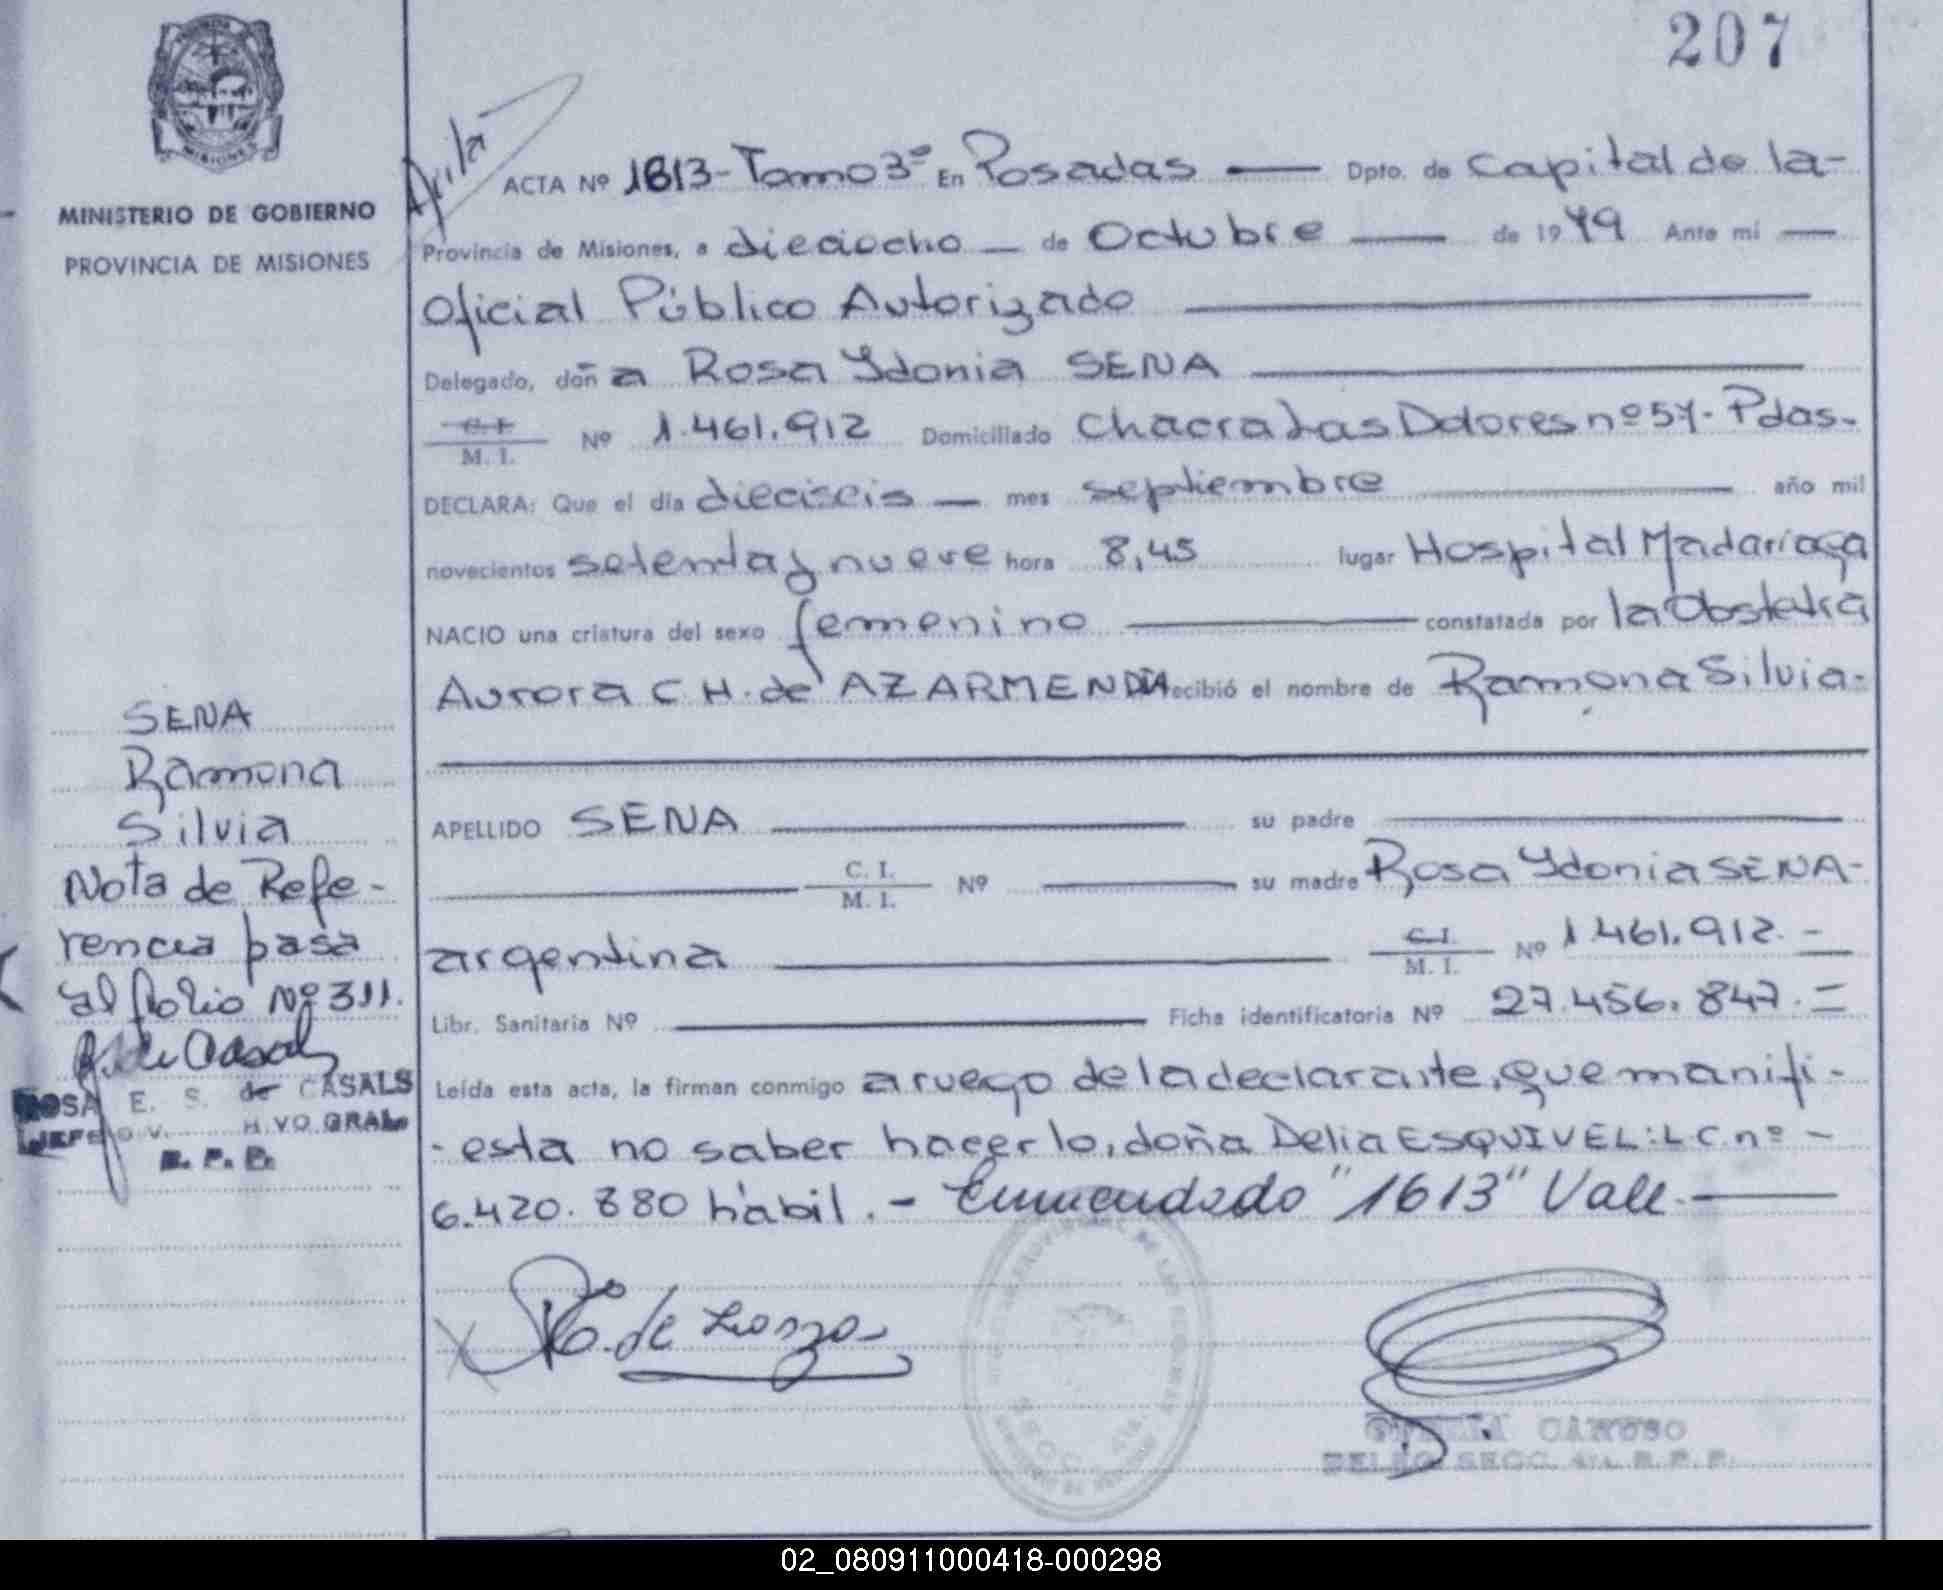 207
MISIONES
MINISTERIO DE GOBIERNO
PROVINCIA DE MISIONES
ACTA Nº 1613-Tomo 3º En Posadas — Dpto. de Capital de la-
Provincia de Misiones, a dieciocho — de Octubre — de 1979 Ante mi —
Oficial Público Autorizado
Delegado, doña Rosa Ydonia SENA
C. I. Nº 1.461.912 Domiciliado Chacra Las Dolores nº 57- Pdas-
M. I.
DECLARA: Que el día dieciseis — mes septiembre año mil
novecientos setenta y nueve hora 8,45 lugar Hospital Madariaga
NACIO una criatura del sexo femenino — constatada por la Obstetra
Aurora C H. de AZARMENDIA recibió el nombre de Ramona Silvia-
APELLIDO SENA — su padre —
C. I. Nº — su madre Rosa Ydonia SENA-
M. I.
argentina — C. I. Nº 1.461.912.-
M. I.
Libr. Sanitaria Nº — Ficha identificatoria Nº 27.456.847.=
Leída esta acta, la firman conmigo a ruego de la declarante, que manifi-
-esta no saber hacerlo, doña Delia ESQUIVEL: L.C. nº -
6.420.880 hábil.- Enmendado "1613" Vale.—
SENA
Ramona
Silvia
Nota de Refe-
rencia pasa
al folio Nº 311.
ROSA E. S. de CASALS
CARUSO
02_080911000418-000298